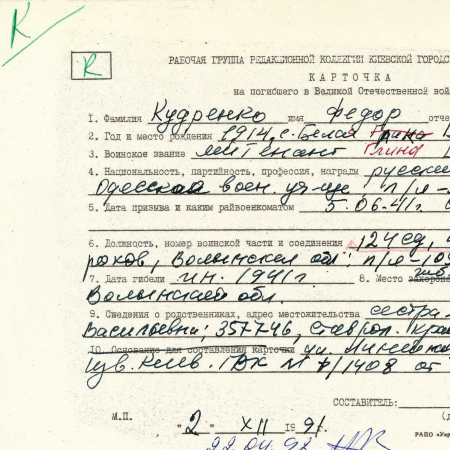 К
К
РАБОЧАЯ ГРУППА РЕДАКЦИОННОЙ КОЛЛЕГИИ КИЕВСКОЙ ГОРОДС
КАРТОЧКА
на погибшего в Великой Отечественной вой
1. Фамилия Кудренко имя Федор отче
2. Год и место рождения 1914, с. Белая
3. Воинское звание лейтенант Глина
4. Национальность, партийность, профессия, награды русский
Одесской воен. уч-ще п/я-
5. Дата призыва и каким райвоенкоматом 5.06.41г.
6. Должность, номер воинской части и соединения 124 сд,
Волынская обл. п/я-
7. Дата гибели ин. 1941г. 8. Место захороне
Волынской обл.
9. Сведения о родственниках, адрес местожительства сестра
Васильевна; 357746, Ставроп. Край
10. Основание для составления карточки
Киев. ГВК №
СОСТАВИТЕЛЬ:
М.П.
"2" XII 1991.
22.04.92
РАПО «Укр